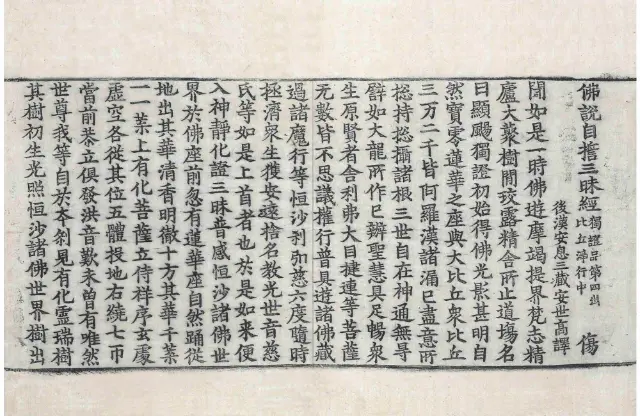 佛說自擔三昧經 獨證品第四出比丘淨行中 傷
後漢安息三藏安世高譯
聞如是一時佛遊摩竭提界梵志精
廬大藂樹間交露精舍所止道場名
曰顯颺獨證初始得佛光影甚明自
然寶零蓮華之座與大比丘衆比丘
三万二千皆阿羅漢諸漏已盡意所
揔持揔攝諸根三世自在神通無㝵
譬如大龍所作已辦聖慧具足暢衆
生原賢者舍利弗大目揵連等菩薩
无數皆不思議權行普具遊諸佛藏
過諸魔行等恒沙刹加慈六度隨時
拯濟衆生獲安遠捨名教光世音慈
氏等如是上首者也於是如來便
入神靜化證三昧善感恒沙諸佛世
界於佛座前忽有蓮華座自然踊從
地出其華清香明徹十方其華千葉
一一葉上有化菩薩立侍祥序玄處
虛空各從其位五體投地右繞七帀
當前恭立俱發洪音歎未曽有唯然
世尊我等自於本刹見有化靈瑞樹
其樹初生光照恒沙諸佛世界樹出